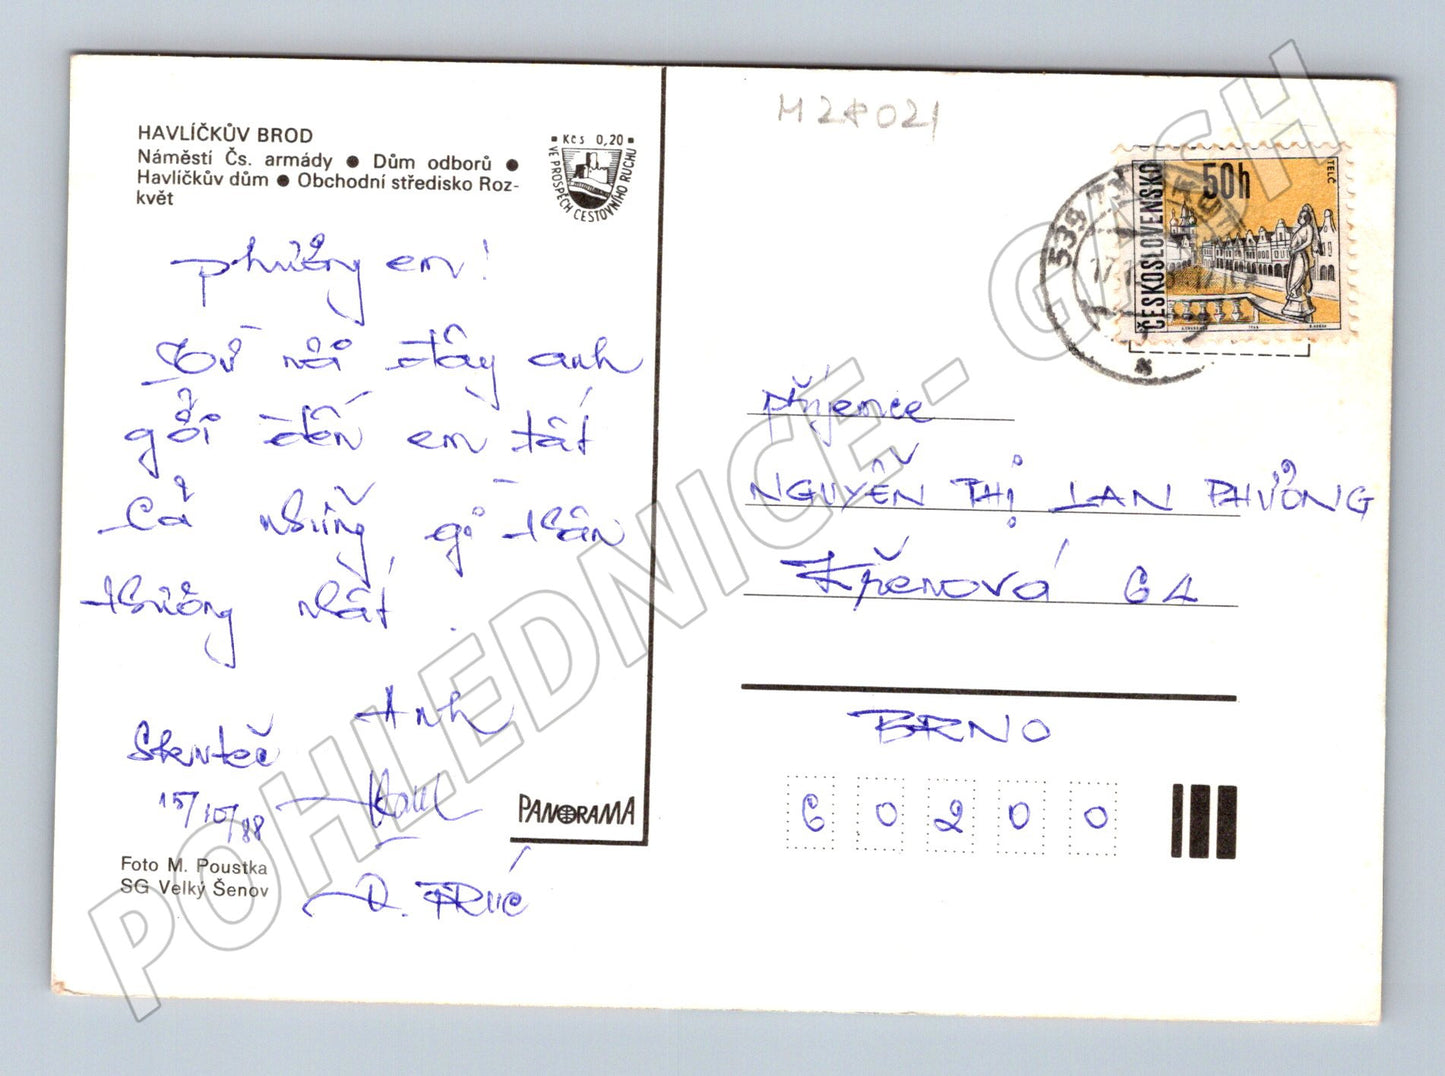 HAVLÍČKŮV BROD
Náměstí Čs. armády ● Dům odborů ●
Havlíčkův dům ● Obchodní středisko Roz-
květ
Kčs 0,20
VE PROSPĚCH CESTOVNÍHO RUCHU
phương em!
Từ nơi đây anh
gởi đến em tất
cả những gì thân
thương nhất.
Anh
Skuteč
15/10/88
Đ.
PANORAMA
Foto M. Poustka
SG Velký Šenov
M28021
ČESKOSLOVENSKO
50h
TELČ
539
příjemce
NGUYỄN THỊ LAN PHƯƠNG
Křenová 61
BRNO
60200
POHLEDNICE - GASH